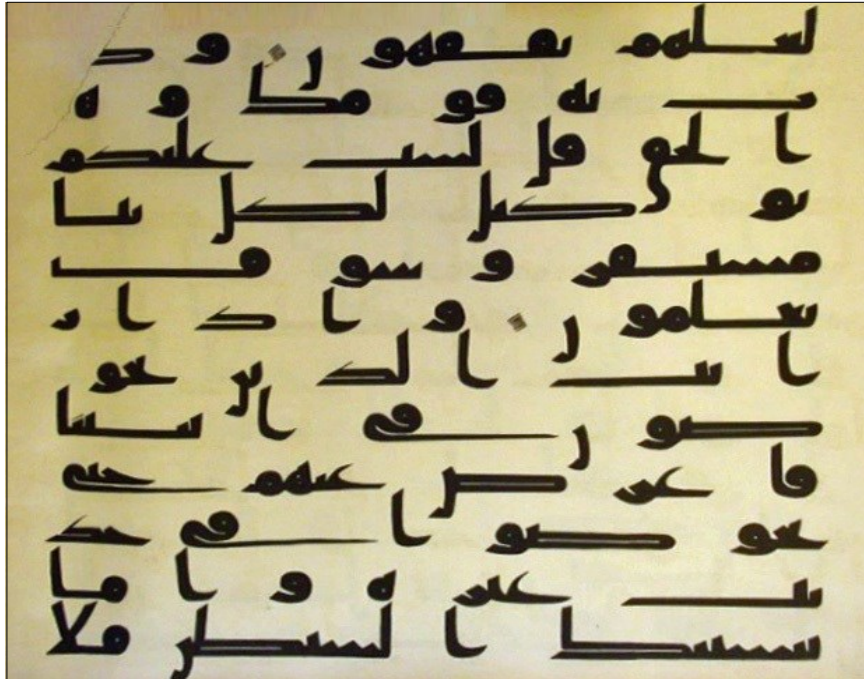 لعلهم يفقهون وكذ
ب به قومك وهو
الحق قل لست عليكم
بوكيل لكل نبا
مستقر وسوف
تعلمون واذا ر
ايت الذين يخو
ضون في ايتنا
فاعرض عنهم حتى
يخوضوا في حد
يث غيره واما
ينسينك الشيطن فلا